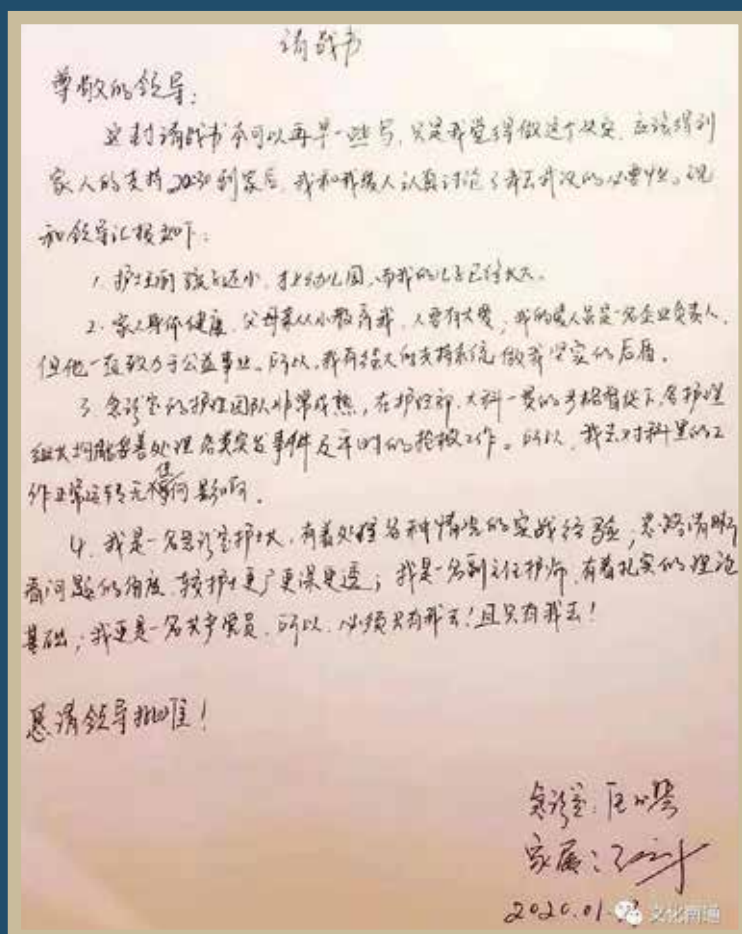 请战书
尊敬的领导:
这封请战书本可以再早一些写,只是我觉得做这个决定,应该得到
家人的支持,20:30到家后,我和我爱人认真讨论了我去武汉的必要性。现
和领导汇报如下:
1. 护士们孩子还小,才上幼儿园,而我的儿子已经长大。
2. 家人身体健康,父母亲从小教育我,人要有大爱,我的爱人虽是一名企业负责人,
但他一直致力于公益事业。所以,我有强大的支持系统做我坚实的后盾。
3. 急诊室的护理团队非常成熟,在护理部、大科一贯的严格督促下,各护理
组长均能妥善处理各类突发事件及平时的抢救工作。所以,我去对科里的工
作正常运转无任何影响。
4. 我是一名急诊室护士长,有着处理各种情况的实战经验,思路清晰
看问题的角度较护士更广更深更透;我是一名副主任护师,有着扎实的理论
基础;我更是一名共产党员,所以,必须只有我去!且只有我去!
恳请领导批准!
急诊室:
家属:
2020.01.
文化南通